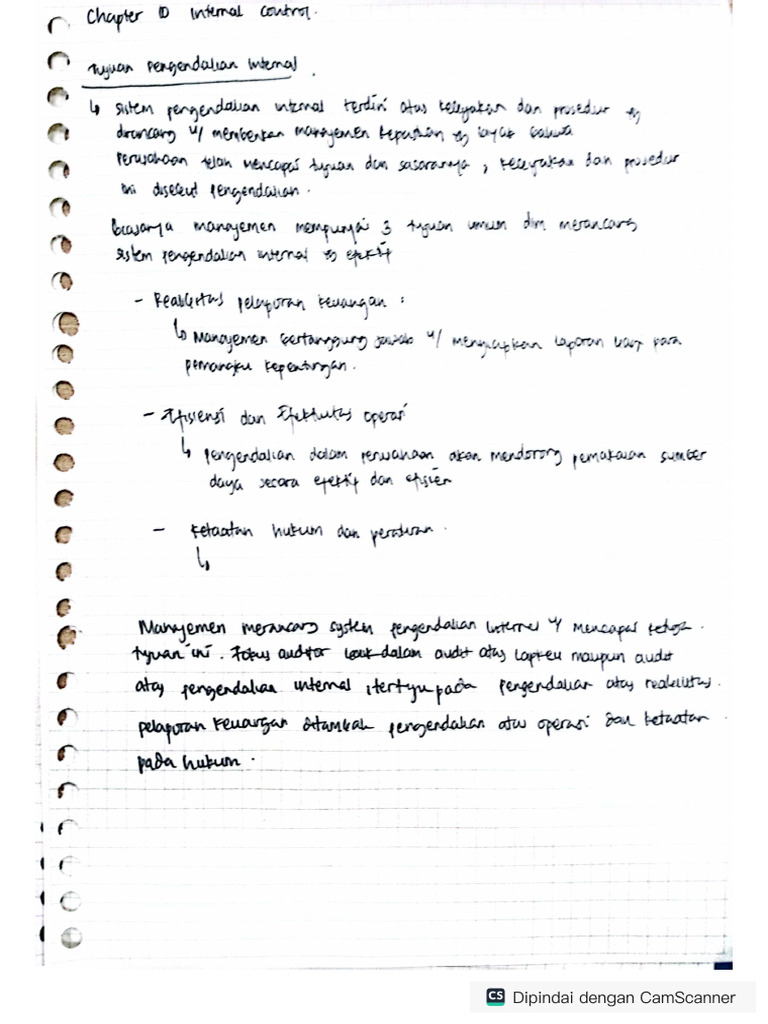 Chapter 10 Internal Control.
Tujuan Pengendalian Internal.
↳ Sistem pengendalian internal terdiri atas kebijakan dan prosedur yg
dirancang u/ memberikan manajemen kepastian yg layak bahwa
Perusahaan telah mencapai tujuan dan sasarannya, kebijakan dan prosedur
ini disebut pengendalian.
Biasanya manajemen mempunyai 3 tujuan umum dlm merancang
sistem pengendalian internal yg efektif
- Reabilitas pelaporan keuangan :
↳ Manajemen bertanggung jawab u/ menyiapkan laporan bagi para
pemangku kepentingan.
- Efisiensi dan Efektivitas operasi
↳ pengendalian dalam perusahaan akan mendorong pemakaian sumber
daya secara efektif dan efisien
- Ketaatan hukum dan peraturan.
↳
Manajemen merancang system pengendalian internal u/ mencapai ketiga
tujuan ini. Fokus auditor baik dalam audit atas lapkeu maupun audit
atas pengendalian internal, tertuju pada pengendalian atas reabilitas
pelaporan keuangan ditambah pengendalian atas operasi dan ketaatan
pada hukum.
CS Dipindai dengan CamScanner